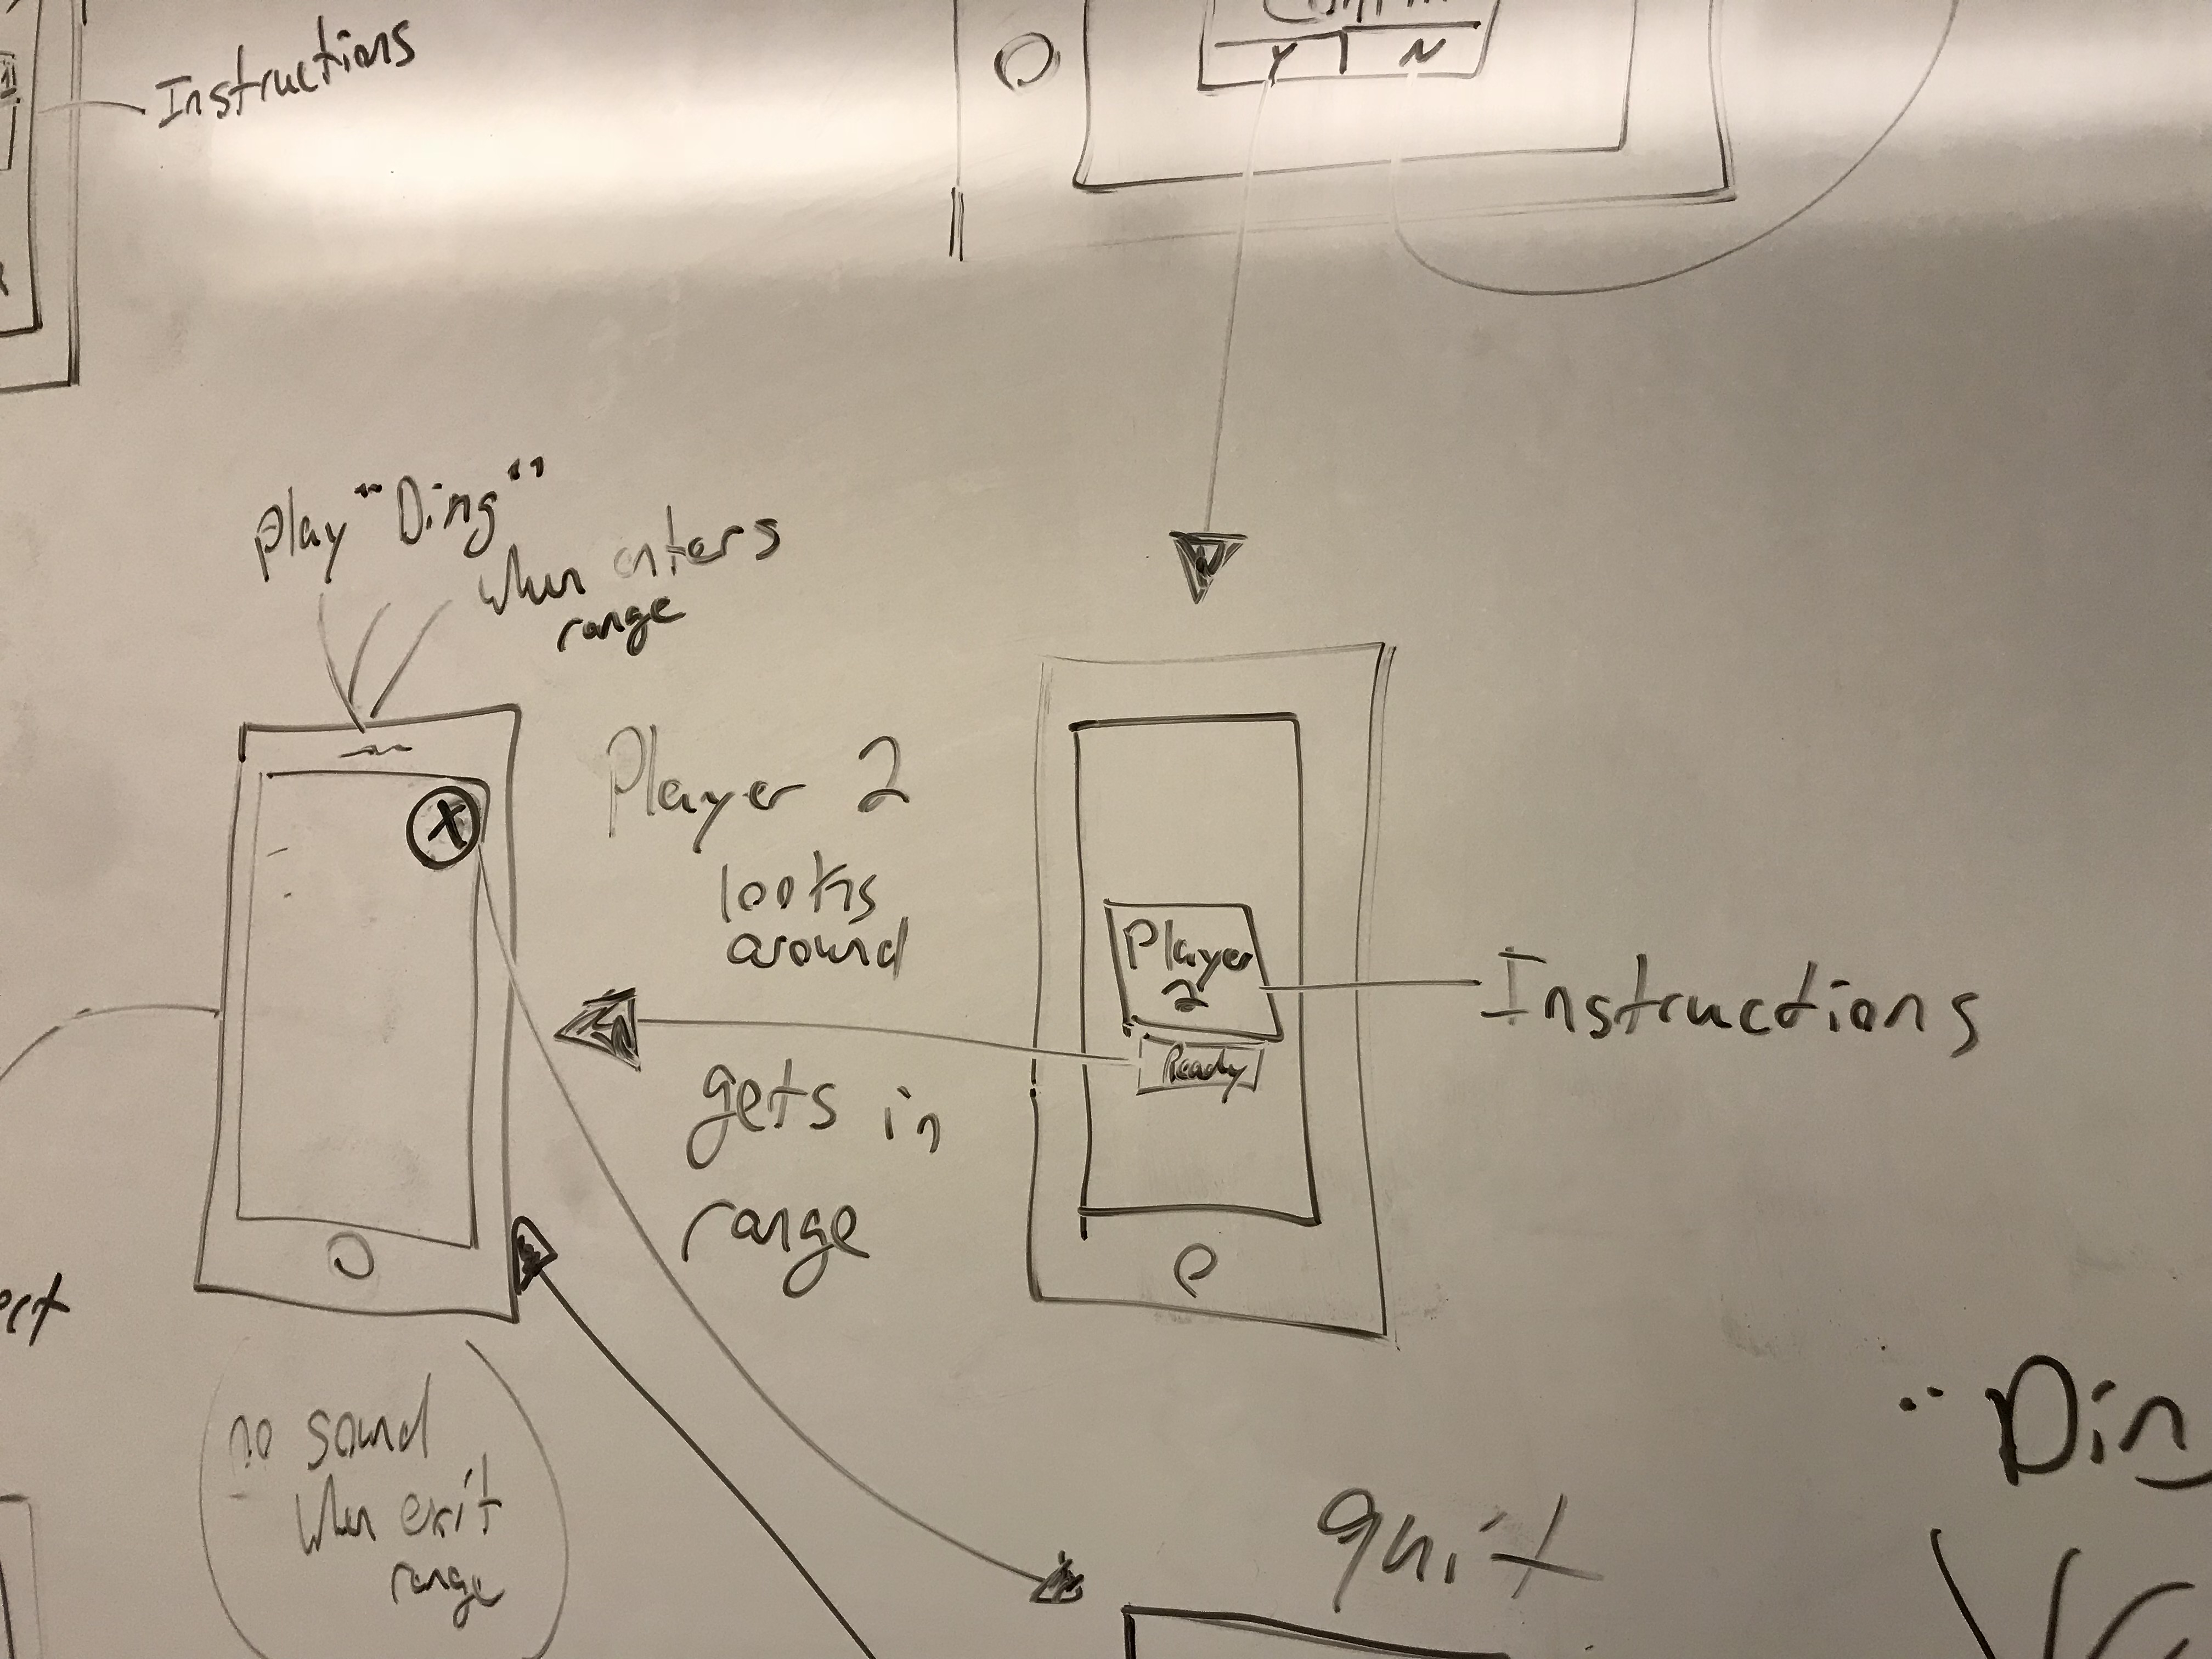 Instructions
Y N
Play "Ding"
when enters
range
X
Player 2
looks
around
gets in
range
Player
2
Ready
Instructions
no sound
when exit
range
quit
"Din